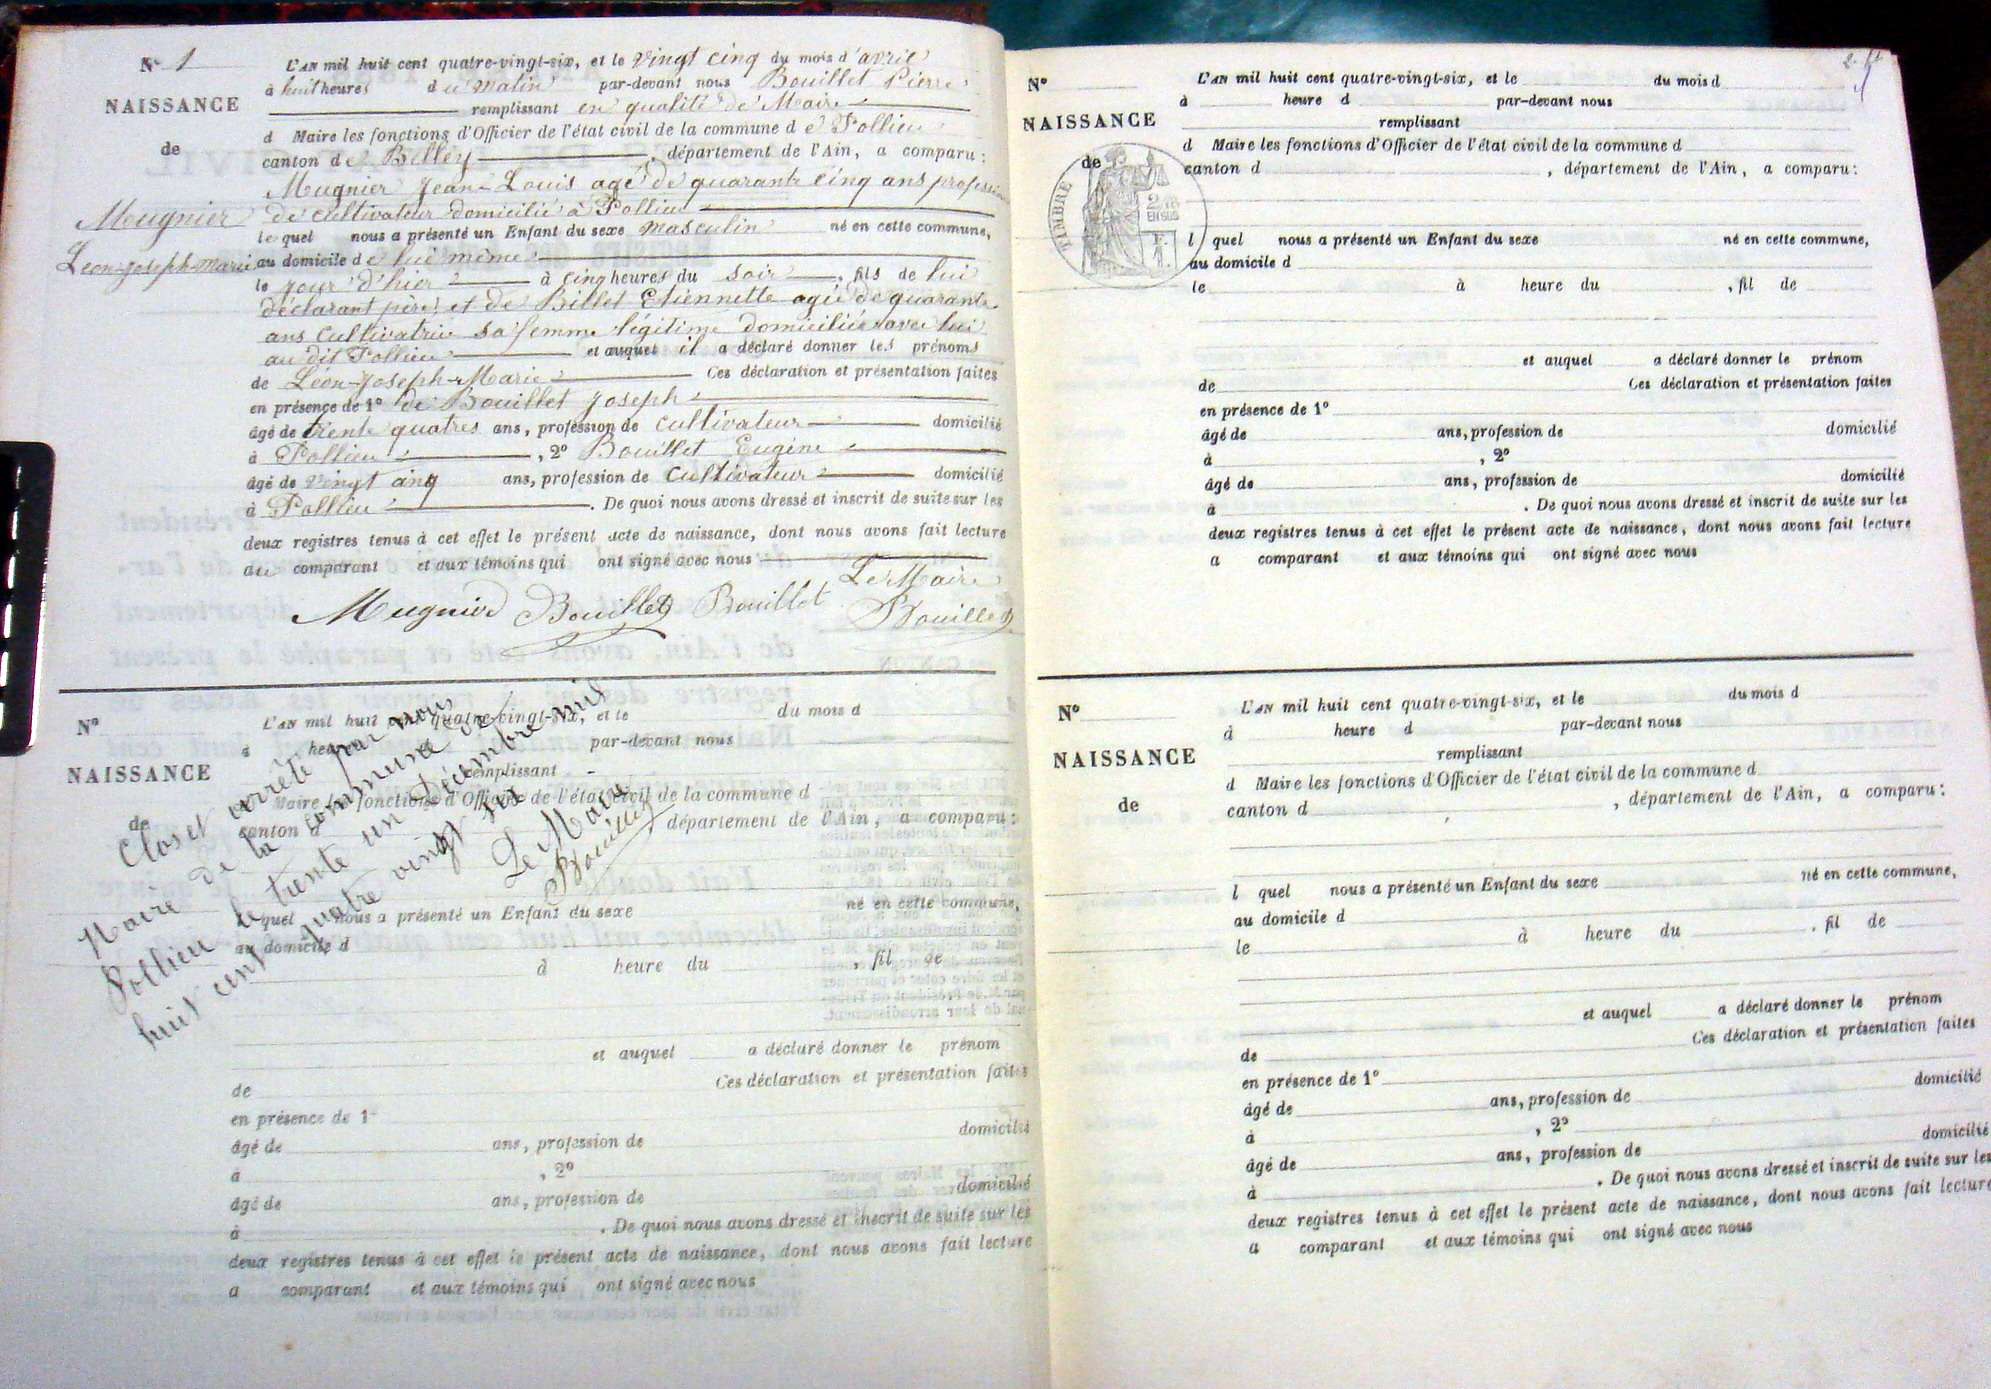 N° 1
NAISSANCE
de
Meugnier
Léon-Joseph-Marie
L'AN mil huit cent quatre-vingt-six, et le vingt cinq du mois d'avril
à huit heures du matin par-devant nous Bouillet Pierre
remplissant en qualité de Maire
d Maire les fonctions d'Officier de l'état civil de la commune de Pollieu
canton de Belley, département de l'Ain, a comparu:
Mugnier Jean-Louis agé de quarante cinq ans profession
de cultivateur domicilié à Pollieu
lequel nous a présenté un Enfant du sexe masculin né en cette commune,
au domicile de lui même
le jour d'hier à cinq heures du soir, fils de lui
déclarant père, et de Billet Etiennette agée de quarante
ans cultivatrice sa femme légitime domiciliée avec lui
au dit Pollieu et auquel il a déclaré donner les prénoms
de Léon-Joseph-Marie Ces déclaration et présentation faites
en présence de 1° de Bouillet Joseph
âgé de trente quatres ans, profession de cultivateur domicilié
à Pollieu, 2° Bouillet Eugène
âgé de vingt cinq ans, profession de cultivateur domicilié
à Pollieu. De quoi nous avons dressé et inscrit de suite sur les
deux registres tenus à cet effet le présent acte de naissance, dont nous avons fait lecture
au comparant et aux témoins qui ont signé avec nous
Le Maire
Mugnier Bouillet Bouillet Bouillet
N°
NAISSANCE
de
L'AN mil huit cent quatre-vingt-six, et le du mois d
à heure d par-devant nous
remplissant
d Maire les fonctions d'Officier de l'état civil de la commune d
canton d, département de l'Ain, a comparu:
l quel nous a présenté un Enfant du sexe né en cette commune,
au domicile d
à heure du , fil de
et auquel a déclaré donner le prénom
de Ces déclaration et présentation faites
en présence de 1°
âgé de ans, profession de domicilié
à , 2°
âgé de ans, profession de domicilié
à . De quoi nous avons dressé et inscrit de suite sur les
deux registres tenus à cet effet le présent acte de naissance, dont nous avons fait lecture
a comparant et aux témoins qui ont signé avec nous
Clos et arrêté par nous
Maire de la commune de
Pollieu le trente un Décembre mil
huit cent quatre vingt six
Le Maire
Bouillet
N°
NAISSANCE
de
TIMBRE
EN SUS
L'AN mil huit cent quatre-vingt-six, et le du mois d
à heure d par-devant nous
remplissant
d Maire les fonctions d'Officier de l'état civil de la commune d
canton d , département de l'Ain, a comparu:
l quel nous a présenté un Enfant du sexe né en cette commune,
au domicile d
le à heure du , fil de
et auquel a déclaré donner le prénom
de Ces déclaration et présentation faites
en présence de 1°
âgé de ans, profession de domicilié
à , 2°
âgé de ans, profession de domicilié
à . De quoi nous avons dressé et inscrit de suite sur les
deux registres tenus à cet effet le présent acte de naissance, dont nous avons fait lecture
a comparant et aux témoins qui ont signé avec nous
N°
NAISSANCE
de
L'AN mil huit cent quatre-vingt-six, et le du mois d
à heure d par-devant nous
remplissant
d Maire les fonctions d'Officier de l'état civil de la commune d
canton d , département de l'Ain, a comparu:
l quel nous a présenté un Enfant du sexe né en cette commune,
au domicile d
le à heure du , fil de
et auquel a déclaré donner le prénom
de Ces déclaration et présentation faites
en présence de 1°
âgé de ans, profession de domicilié
à , 2°
âgé de ans, profession de domicilié
à . De quoi nous avons dressé et inscrit de suite sur les
deux registres tenus à cet effet le présent acte de naissance, dont nous avons fait lecture
a comparant et aux témoins qui ont signé avec nous